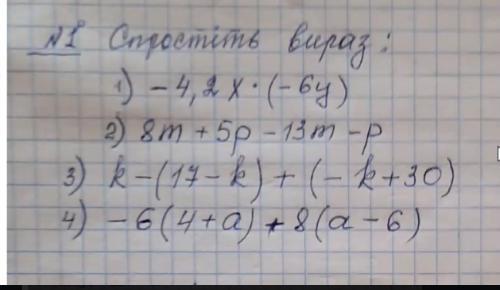 №1 Спростіть вираз:
1) -4,2x·(-6y)
2) 8m+5p-13m-p
3) k-(17-k)+(-k+30)
4) -6(4+a)-8(a-6)